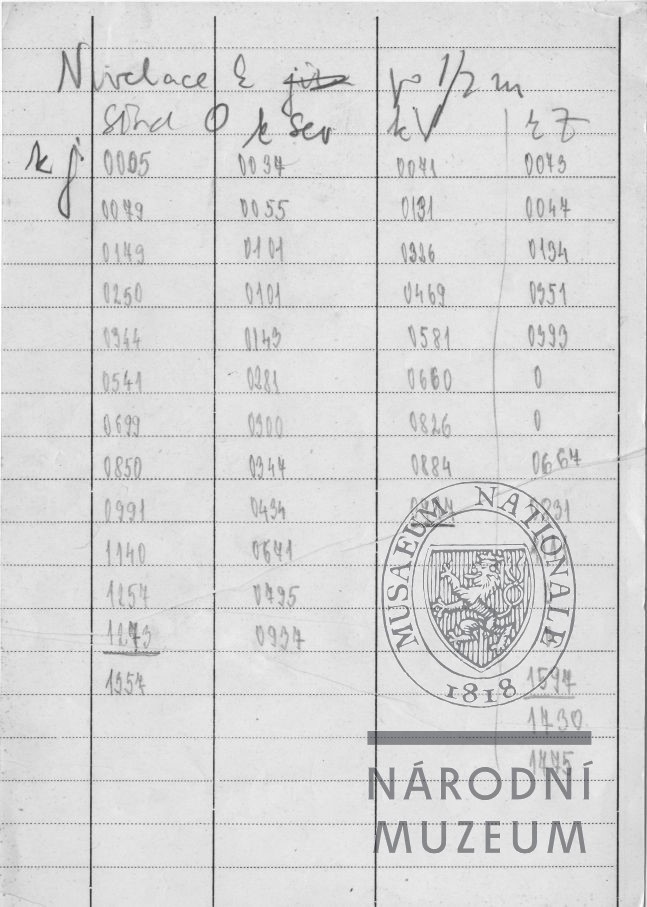 Nivelace po 1/2 m
střed O k Sev k V k Z
k j 0005 0037 0071 0073
0079 0055 0131 0047
0179 0101 0326 0134
0250 0101 0469 0351
0344 0143 0581 0393
0541 0281 0660 0
0699 0300 0826 0
0850 0344 0884 0667
0991 0434
1140 0671
1257 0795
1273 0937
1357 1597
1730
1775
MUSAEUM NATIONALE
1818
NÁRODNÍ
MUZEUM